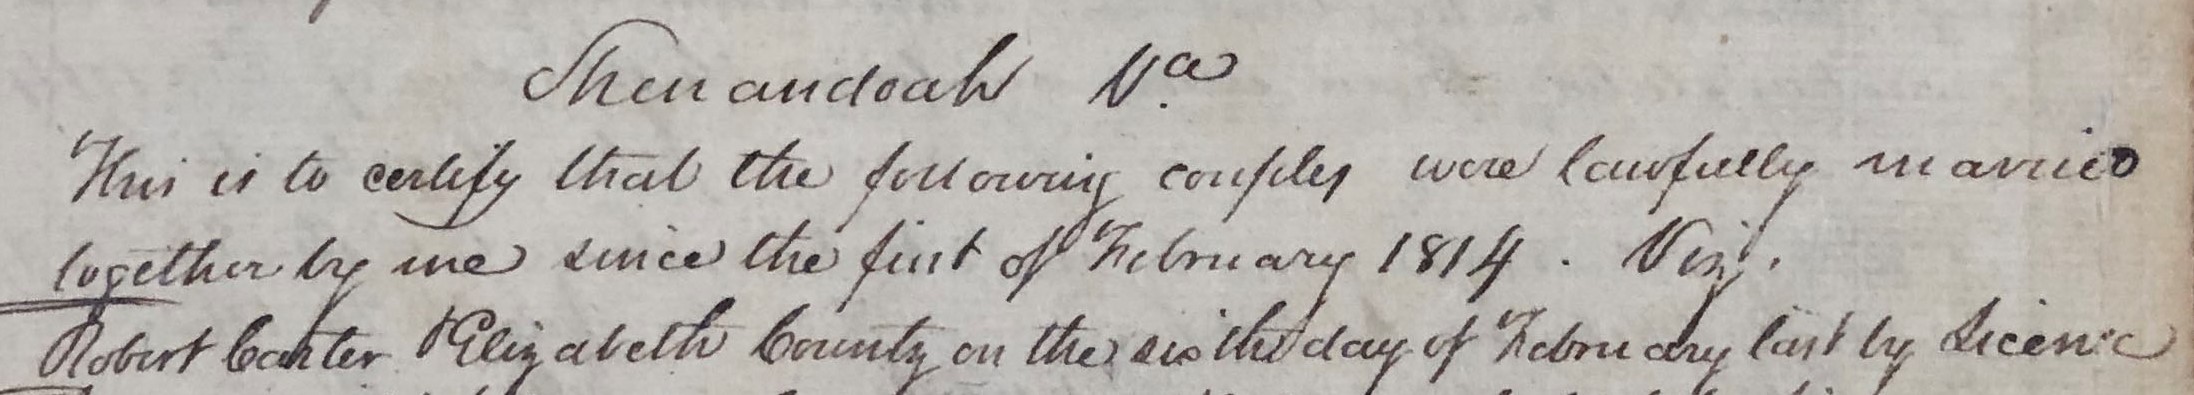 Shenandoah Va
This is to certify that the following couples were lawfully married
together by me since the first of February 1814. Viz.
Robert Carter & Elizabeth County on the sixth day of February last by Licence